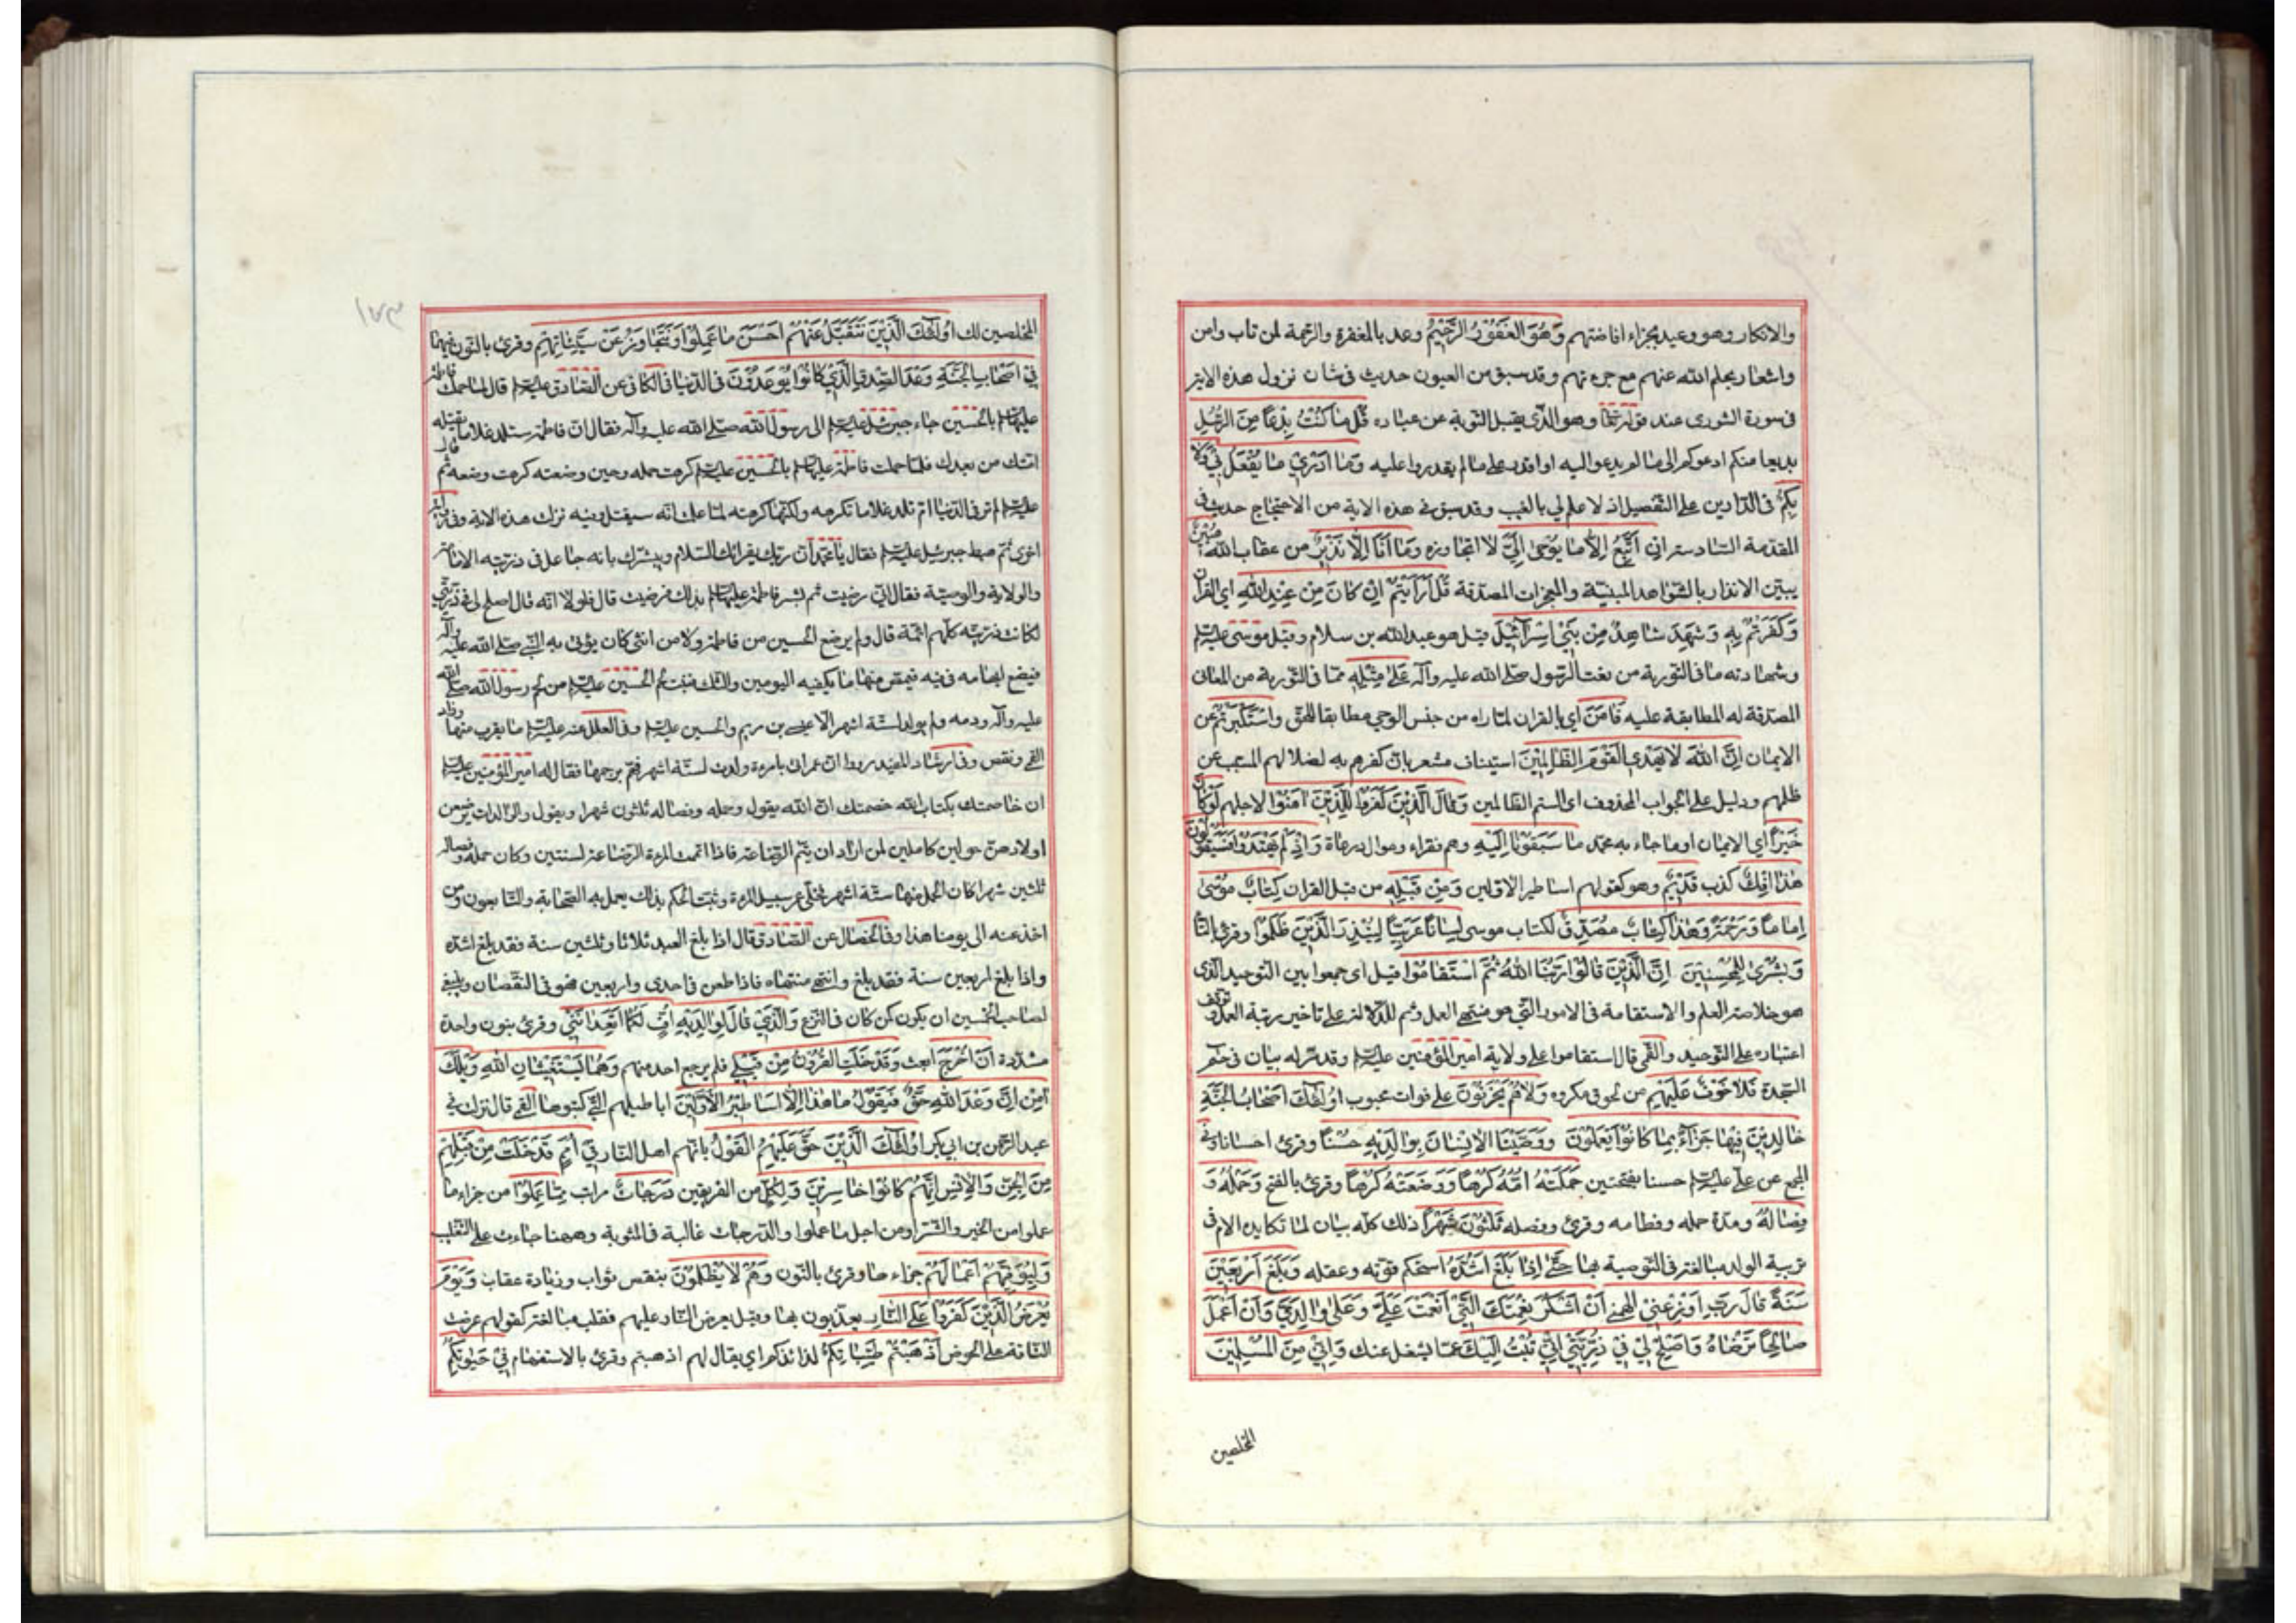 والانكار وهو وعيد بجزاء افاضتهم وَهُوَ الْغَفُورُ الرَّحِيمُ وعد بالمغفرة والرّحمة لمن تاب وامن
واشعار بحلم الله عنهم مع جرءتهم وقد سبق من العيون حديث فى شان نزول هذه الاية
فى سورة الشورى عند قوله تعالى وهو الّذى يقبل التوبة عن عباده قُلْ مَا كُنْتُ بِدْعًا مِنَ الرُّسُلِ
بديعا منكم ادعوكم الى ما لم يدعوا اليه او اقدر على ما لم يقدروا عليه وَمَا اَدْرِي مَا يُفْعَلُ بِي وَلَا
بِكُمْ فى الدّارين على التفصيل اذ لا علم لي بالغيب وقد سبق فى هذه الاية من الاحتجاج حديث فى
المقدمة السّادسة اِنْ اَتَّبِعُ اِلَّا مَا يُوحَى اِلَيَّ لا اتجاوزه وَمَا اَنَا اِلَّا نَذِيرٌ من عقاب الله مُبِينٌ
يبيّن الانذار بالشواهد المبنيّة والمعجزات المصدّقة قُلْ اَرَاَيْتُمْ اِنْ كَانَ مِنْ عِنْدِ اللهِ اي القران
وَكَفَرْتُمْ بِهِ وَشَهِدَ شَاهِدٌ مِنْ بَنِي اِسْرَائِيلَ قيل هو عبد الله بن سلام وقيل موسى عليه السلم
وشهادته ما فى التّورية من نعت الرّسول صلّى الله عليه وآله عَلَى مِثْلِهِ ممّا فى التّورية من المعانى
المصدّقة له المطابقة عليه فَاٰمَنَ اي بالقران لمّا راه من جنس الوحي مطابقا للحقّ وَاسْتَكْبَرْتُمْ عن
الايمان اِنَّ اللهَ لَا يَهْدِي الْقَوْمَ الظَّالِمِينَ استيناف مشعر بانّ كفرهم به لضلالهم المسبب عن
ظلمهم ودليل على الجواب المحذوف اى الستم الظالمين وَقَالَ الَّذِينَ كَفَرُوا لِلَّذِينَ اٰمَنُوا لاجلهم لَوْ كَانَ
خَيْرًا اي الايمان او ما جاء به محمّد مَا سَبَقُونَا اِلَيْهِ وهم فقراء وموال ورعاة وَاِذْ لَمْ يَهْتَدُوا بِهِ فَسَيَقُولُونَ
هٰذَا اِفْكٌ كذب قَدِيمٌ وهو كقولهم اساطير الاوّلين وَمِنْ قَبْلِهِ من قبل القران كِتَابُ مُوسَى
اِمَامًا وَرَحْمَةً وَهٰذَا كِتَابٌ مُصَدِّقٌ لكتاب موسى لِسَانًا عَرَبِيًّا لِيُنْذِرَ الَّذِينَ ظَلَمُوا وقرئ بالتّا
وَبُشْرَى لِلْمُحْسِنِينَ اِنَّ الَّذِينَ قَالُوا رَبُّنَا اللهُ ثُمَّ اسْتَقَامُوا قيل اى جمعوا بين التوحيد الّذى
هو خلاصة العلم والاستقامة فى الامور الّتي هو منتهى العمل وثم للدّلالة على تاخير رتبة العمل وتوقف
اعتباره على التوحيد والقمّى قال استقاموا على ولاية امير المؤمنين عليه السلم وقد مرّ له بيان فى حم
السّجدة فَلَا خَوْفٌ عَلَيْهِمْ من لحوق مكروه وَلَا هُمْ يَحْزَنُونَ على فوات محبوب اُولٰئِكَ اَصْحَابُ الْجَنَّةِ
خَالِدِينَ فِيهَا جَزَاءً بِمَا كَانُوا يَعْمَلُونَ وَوَصَّيْنَا الْاِنْسَانَ بِوَالِدَيْهِ حُسْنًا وقرئ احسانا وفى
المجمع عن علي عليه السلم حسنا بفتحتين حَمَلَتْهُ اُمُّهُ كَرْهًا وَوَضَعَتْهُ كَرْهًا وقرئ بالفتح وَحَمْلُهُ وَ
فِصَالُهُ ومدّة حمله وفطامه وقرئ وفصله ثَلٰثُونَ شَهْرًا ذلك كلّه بيان لما تكابده الام فى
تربية الولد مبالغة فى التوصية بها حَتَّى اِذَا بَلَغَ اَشُدَّهُ استحكم قوّته وعقله وَبَلَغَ اَرْبَعِينَ
سَنَةً قَالَ رَبِّ اَوْزِعْنِي الهمني اَنْ اَشْكُرَ نِعْمَتَكَ الَّتِي اَنْعَمْتَ عَلَيَّ وَعَلَى وَالِدَيَّ وَاَنْ اَعْمَلَ
صَالِحًا تَرْضَاهُ وَاَصْلِحْ لِي فِي ذُرِّيَّتِي اِنِّي تُبْتُ اِلَيْكَ عمّا يشغل عنك وَاِنِّي مِنَ الْمُسْلِمِينَ
المخلصين
١٨٣
المخلصين لك اُولٰئِكَ الَّذِينَ نَتَقَبَّلُ عَنْهُمْ اَحْسَنَ مَا عَمِلُوا وَنَتَجَاوَزُ عَنْ سَيِّئَاتِهِمْ وقرئ بالنّون فيهما
فِي اَصْحَابِ الْجَنَّةِ وَعْدَ الصِّدْقِ الَّذِي كَانُوا يُوعَدُونَ فى الدّنيا فى الكافى عن الصّادق عليه السلم قال لما حملت فاطمة
عليها السلم بالحسين جاء جبرئيل عليه السلم الى رسول الله صلّى الله عليه وآله فقال انّ فاطمة ستلد غلاما يقتله
امّتك من بعدك فلمّا حملت فاطمة عليها السلم بالحسين عليه السلم كرهت حمله وحين وضعته كرهت وضعه ثم قال
عليه السلم لم تر فى الدّنيا امّ تلد غلاما تكرهه ولكنّها كرهته لما علمت انّه سيقتل وفيه نزلت هذه الاية وفى رواية
اخرى ثمّ هبط جبرئيل عليه السلم فقال يا محمّد انّ ربّك يقرائك السّلام ويبشّرك بانه جاعل فى ذريّته الامامة
والولاية والوصيّة فقال انّي رضيت ثم بشر فاطمة عليها السلم بذلك فرضيت قال فلولا انّه قال اصلح لي فى ذرّيّتي
لكانت ذريّته كلّهم ائمّة قال ولم يرضع الحسين من فاطمة ولا من انثى كان يؤتى به النّبي صلّى الله عليه وآله
فيضع ابهامه فى فيه فيمصّ منها ما يكفيه اليومين والثلث فنبت لحم الحسين عليه السلم من لحم رسول الله صلّى الله
عليه وآله ودمه ولم يولد لستّة اشهر الّا عيسى بن مريم والحسين عليه السلم وفى العلل عنه عليه السلم ما يقرب منها وزاد
القمّي ونقص وفى ارشاد المفيد رووا انّ عمر اتى بامرءة ولدت لستّة اشهر فهمّ برجمها فقال له امير المؤمنين عليه السلم
ان خاصمتك بكتاب الله خصمتك انّ الله يقول وحمله وفصاله ثلثون شهرا ويقول والوالدات يرضعن
اولادهنّ حولين كاملين لمن اراد ان يتمّ الرّضاعة فاذا اتمت المرءة الرضاعة لسنتين وكان حمله وفصاله
ثلثين شهرا كان الحمل منها ستّة اشهر فخلّى عمر سبيل المرءة وثبت الحكم بذلك يعمل به الصّحابة والتّابعون ومن
اخذ عنه الى يومنا هذا وفى الخصال عن الصّادق قال اذا بلغ العبد ثلاثا وثلثين سنة فقد بلغ اشدّه
واذا بلغ اربعين سنة فقد بلغ وانتهى منتهاه فاذا طعن فى احدى واربعين فهو فى النّقصان وينبغى
لصاحب الخمسين ان يكون كمن كان فى النّزع وَالَّذِي قَالَ لِوَالِدَيْهِ اُفٍّ لَكُمَا اَتَعِدَانِنِي وقرئ بنون واحدة
مشدّدة اَنْ اُخْرَجَ ابعث وَقَدْ خَلَتِ الْقُرُونُ مِنْ قَبْلِي فلم يرجع احد منهم وَهُمَا يَسْتَغِيثَانِ اللهَ وَيْلَكَ
اٰمِنْ اِنَّ وَعْدَ اللهِ حَقٌّ فَيَقُولُ مَا هٰذَا اِلَّا اَسَاطِيرُ الْاَوَّلِينَ اباطيلهم الّتي كتبوها القمّي قال نزلت فى
عبد الرّحمن بن ابي بكر اُولٰئِكَ الَّذِينَ حَقَّ عَلَيْهِمُ الْقَوْلُ بانّهم اهل النّار فِي اُمَمٍ قَدْ خَلَتْ مِنْ قَبْلِهِمْ
مِنَ الْجِنِّ وَالْاِنْسِ اِنَّهُمْ كَانُوا خَاسِرِينَ وَلِكُلٍّ من الفريقين دَرَجَاتٌ مراتب مِمَّا عَمِلُوا من جزاء ما
عملوا من الخير والشّر او من اجل ما عملوا والدّرجات غالبة فى المثوبة وههنا جاءت على التغليب
وَلِيُوَفِّيَهُمْ اَعْمَالَهُمْ جزاءها وقرئ بالنّون وَهُمْ لَا يُظْلَمُونَ بنقص ثواب وزيادة عقاب وَيَوْمَ
يُعْرَضُ الَّذِينَ كَفَرُوا عَلَى النَّارِ يعذّبون بها وقيل يعرض النّار عليهم فقلب مبالغة كقولهم عرضت
النّاقة على الحوض اَذْهَبْتُمْ طَيِّبَاتِكُمْ لذائذكم اي يقال لهم اذهبتم وقرئ بالاستفهام فِي حَيٰوتِكُمُ